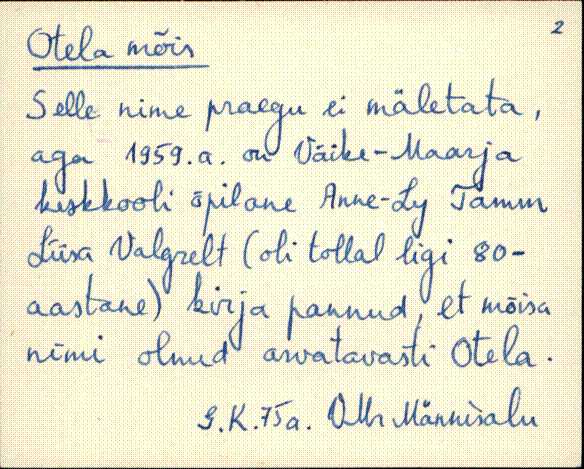 2
Otela mõis
Selle nime praegu ei mäletata,
aga 1959.a. on Väike-Maarja
keskkooli õpilane Anne-Ly Tamm
Liisa Valgrelt (oli tollal ligi 80-
aastane) kirja pannud, et mõisa
nimi olnud arvatavasti Otela.
G.K. 75a. Männisalu